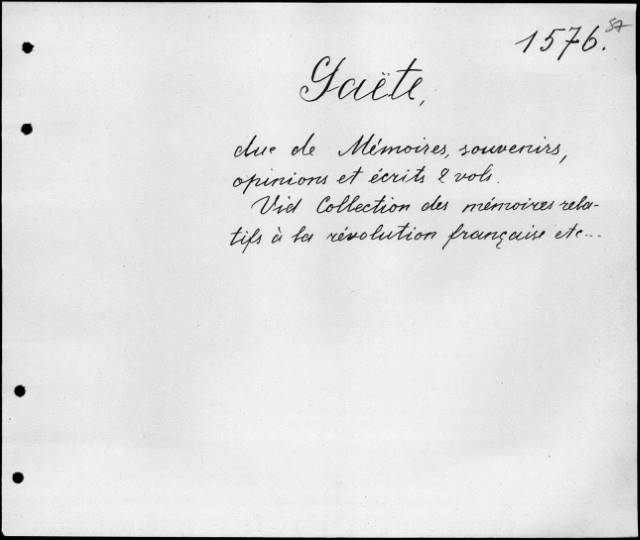 1576. 57
Gaëte,
duc de Mémoires, souvenirs,
opinions et écrits 2 vols.
Vid Collection des mémoires rela-
tifs à la révolution française etc...